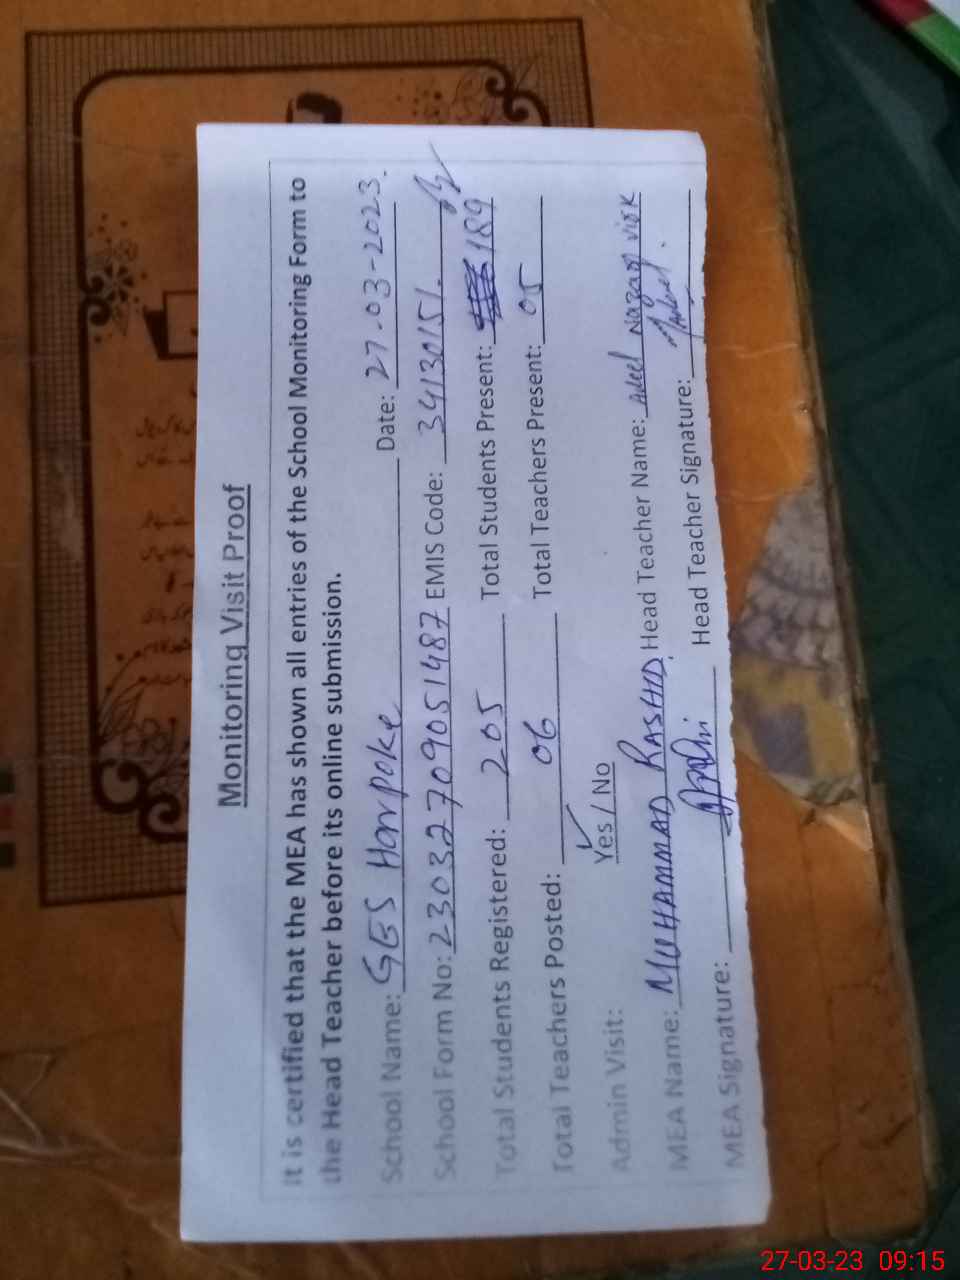 Monitoring Visit Proof
It is certified that the MEA has shown all entries of the School Monitoring Form to
the Head Teacher before its online submission.
School Name: GES Harpoke Date: 27-03-2023.
School Form No: 23032709051487 EMIS Code: 34130151
Total Students Registered: 205 Total Students Present: 189
Total Teachers Posted: 06 Total Teachers Present: 05
Admin Visit: Yes / No
MEA Name: MUHAMMAD RASHID Head Teacher Name: Adeel
MEA Signature: Head Teacher Signature:
27-03-23 09:15